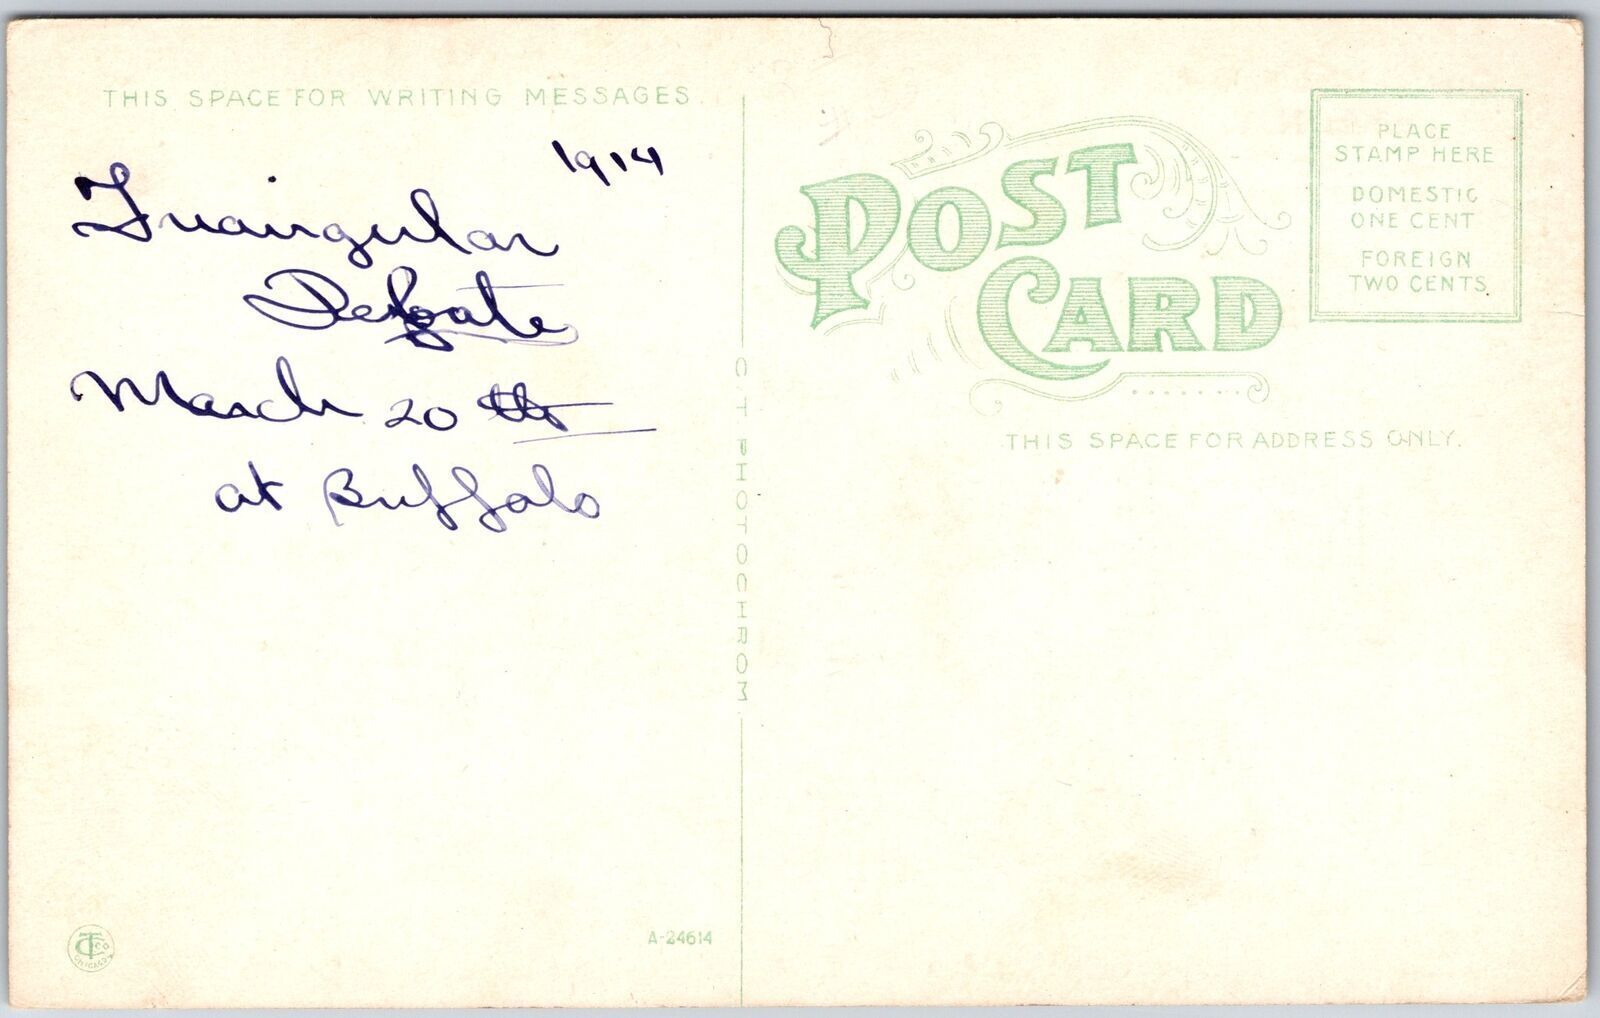 THIS SPACE FOR WRITING MESSAGES.
1914
Triangular
Debate
March 20 th
at Buffalo
C. T. PHOTOCHROM
A-24614
CT CO
CHICAGO
POST
CARD
PLACE
STAMP HERE
DOMESTIC
ONE CENT
FOREIGN
TWO CENTS
THIS SPACE FOR ADDRESS ONLY.